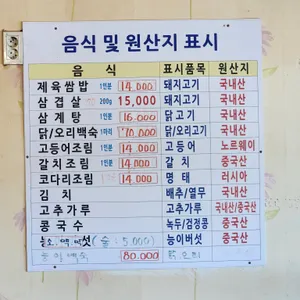 음식 및 원산지 표시
음 식 표시품목 원산지
제육쌈밥 1인분 14.000 돼지고기 국내산
삼겹살 200g 15,000 돼지고기 국내산
삼계탕 1인분 16.000 닭고기 국내산
닭/오리백숙 1마리 70.000 닭/오리고기 국내산
고등어조림 1인분 14.000 고등어 노르웨이
갈치조림 1인분 14.000 갈치 중국산
코다리조림 14.000 명태 러시아
김 치 배추/열무 국내산
고추가루 고추가루 국내산/중국산
콩국수 녹두/검정콩 중국산
능이버섯 중국산
80.000